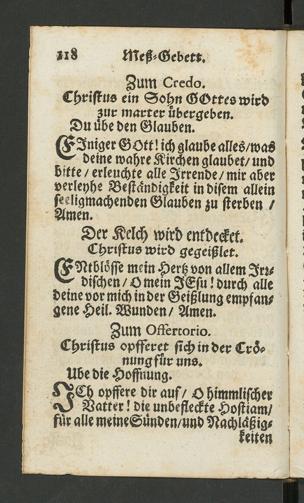 118 Meß-Gebett.
Zum Credo.
Christus ein Sohn GOttes wird
zur marter übergeben.
Du übe den Glauben.
EIniger GOtt! ich glaube alles/was
deine wahre Kirchen glaubet/ und
bitte/ erleuchte alle Irrende/ mir aber
verleyhe Beständigkeit in disem allein
seeligmachenden Glauben zu sterben /
Amen.
Der Kelch wird entdecket.
Christus wird gegeißlet.
ENtblösse mein Hertz von allem Irr-
dischen/ O mein JEsu! durch alle
deine vor mich in der Geißlung empfan-
gene Heil. Wunden/ Amen.
Zum Offertorio.
Christus opfferet sich in der Crö-
nung für uns.
Ube die Hoffnung.
ICh opffere dir auf/ O himmlischer
Vatter! die unbefleckte Hostiam/
für alle meine Sünden/und Nachläßig-
keiten